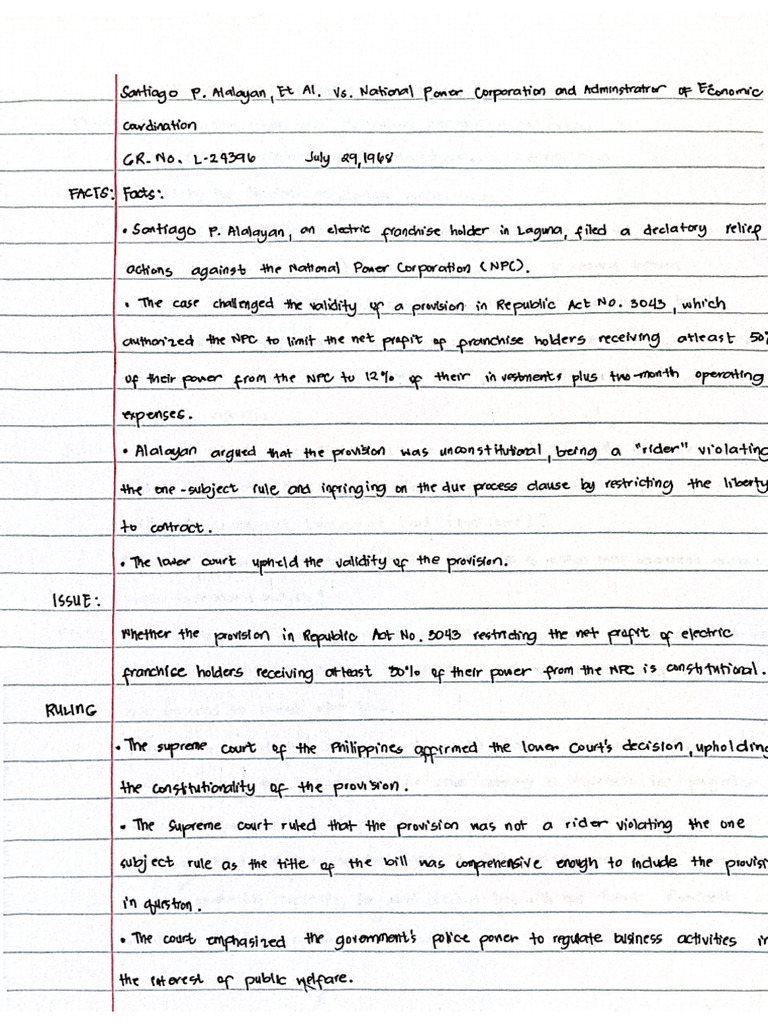 Santiago P. Alalayan, Et Al. Vs. National Power Corporation and Adminstrator of Economic
Cordination
GR. No. L-24396 July 29,1968
FACTS: Facts:
• Santiago P. Alalayan, an electric franchise holder in Laguna, filed a declatory relief
actions against the National Power Corporation (NPC).
• The case challenged the validity of a provision in Republic Act No. 3043, which
authorized the NPC to limit the net profit of franchise holders receiving atleast 50%
of their power from the NPC to 12% of their investments plus two-month operating
expenses.
• Alalayan argued that the provision was unconstitutional, being a "rider" violating
the one-subject rule and infringing on the due process clause by restricting the liberty
to contract.
• The lower court upheld the validity of the provision.
ISSUE:
Whether the provision in Republic Act No. 3043 restricting the net profit of electric
franchise holders receiving atleast 50% of their power from the NPC is constitutional.
RULING
• The supreme court of the Philippines affirmed the lower Court's decision, upholding
the constitutionality of the provision.
• The Supreme court ruled that the provision was not a rider violating the one
subject rule as the title of the bill was comprehensive enough to include the provisi
in question.
• The court emphasized the government's police power to regulate business activities in
the interest of public welfare.